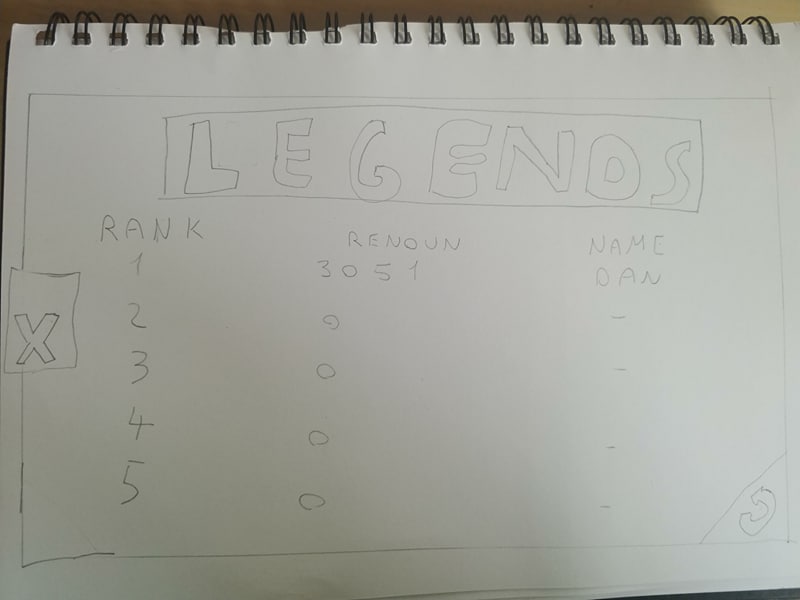 LEGENDS
RANK RENOUN NAME
1 3051 DAN
2 0 -
3 0 -
X
4 0 -
5 0 -